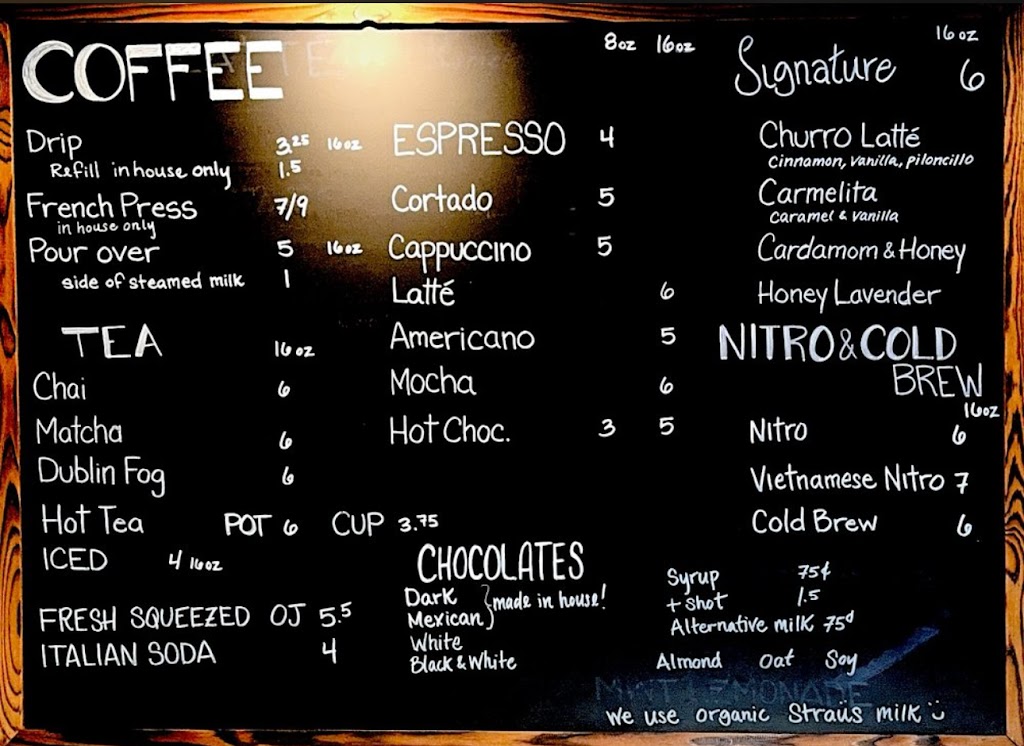 COFFEE
Drip 3.25 16oz
Refill in house only 1.5
French Press 7/9
in house only
Pour over 5 16oz
side of steamed milk 1
TEA 16 oz
Chai 6
Matcha 6
Dublin Fog 6
Hot Tea POT 6 CUP 3.75
ICED 4 16oz
FRESH SQUEEZED OJ 5.5
ITALIAN SODA 4
8oz 16oz
ESPRESSO 4
Cortado 5
Cappuccino 5
Latté 6
Americano 5
Mocha 6
Hot Choc. 3 5
CHOCOLATES
Dark } made in house!
Mexican
White
Black & White
16 oz
Signature 6
Churro Latté
cinnamon, vanilla, piloncillo
Carmelita
caramel & vanilla
Cardamom & Honey
Honey Lavender
NITRO & COLD
BREW
16oz
Nitro 6
Vietnamese Nitro 7
Cold Brew 6
Syrup 75¢
+ shot 1.5
Alternative milk 75¢
Almond Oat Soy
MINT LEMONADE
We use organic Straüs milk ü